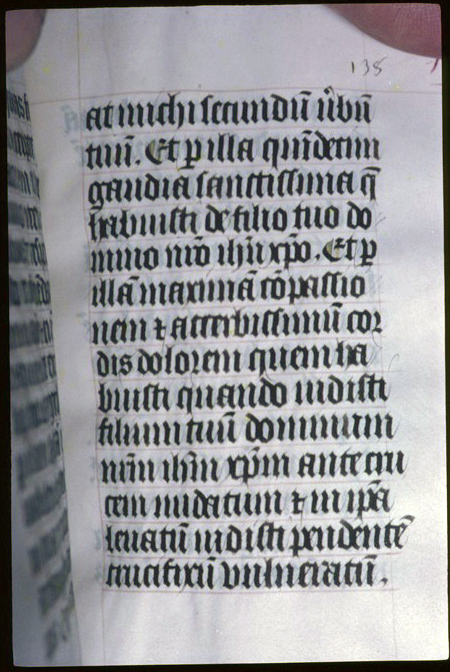 138
at michi secundū ūbū
tuū. Et ꝑ illa quīdecim
gaudia sanctissima q̄
habuisti de filio tuo do
mino nr̄o ih̄u xp̄o. Et ꝑ
illā maximā cōpassio
nem ⁊ acerbissimū cor
dis dolorem quem ha
buisti quando uidisti
filium tuū dominum
nr̄m ih̄m xp̄m ante cru
cem nudatum ⁊ in ip̄a
leuatū uidisti pendentē
crucifixū vulneratū.